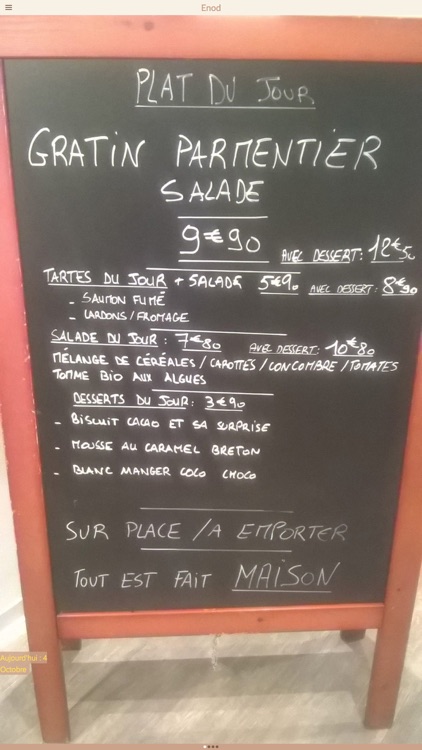 Enod
PLAT DU JOUR
GRATIN PARMENTIER
SALADE
9€90
AVEC DESSERT: 12€50
TARTES DU JOUR + SALADE 5€90 AVEC DESSERT: 8€90
- SAUMON FUMÉ
- LARDONS / FROMAGE
SALADE DU JOUR: 7€80 AVEC DESSERT: 10€80
MÉLANGE DE CÉRÉALES / CAROTTES / CONCOMBRE / TOMATES
TOMME BIO AUX ALGUES
DESSERTS DU JOUR: 3€90
- BISCUIT CACAO ET SA SURPRISE
- MOUSSE AU CARAMEL BRETON
- BLANC MANGER COCO CHOCO
SUR PLACE / A EMPORTER
TOUT EST FAIT MAISON
Aujourd'hui : 4
Octobre !